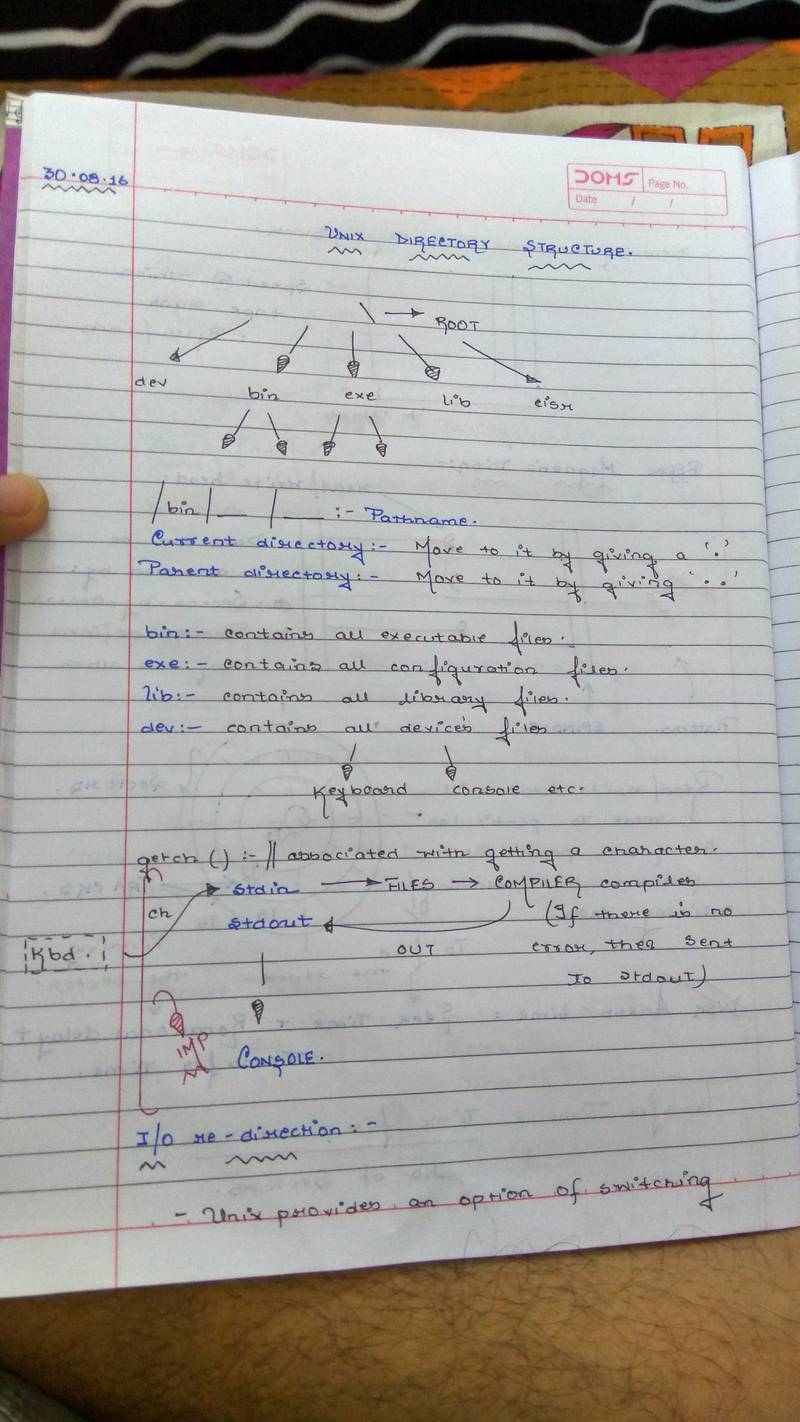 30.08.16
DOMS Page No.
Date / /
UNIX DIRECTORY STRUCTURE.
\ → ROOT
dev bin exe lib eisr
/bin/__ /__ :- Pathname.
Current directory:- Move to it by giving a '.'
Parent directory:- Move to it by giving '..'
bin:- contains all executable files.
exe:- contains all configuration files.
lib:- contains all library files.
dev:- contains all devices files
Keyboard console etc.
getch() :- // associated with getting a character.
stdin → FILES → COMPILER compiles
ch
stdout (If there is no
Kbd. OUT error, then sent
To stdout)
IMP
CONSOLE.
I/O re-direction:-
- Unix provides an option of switching